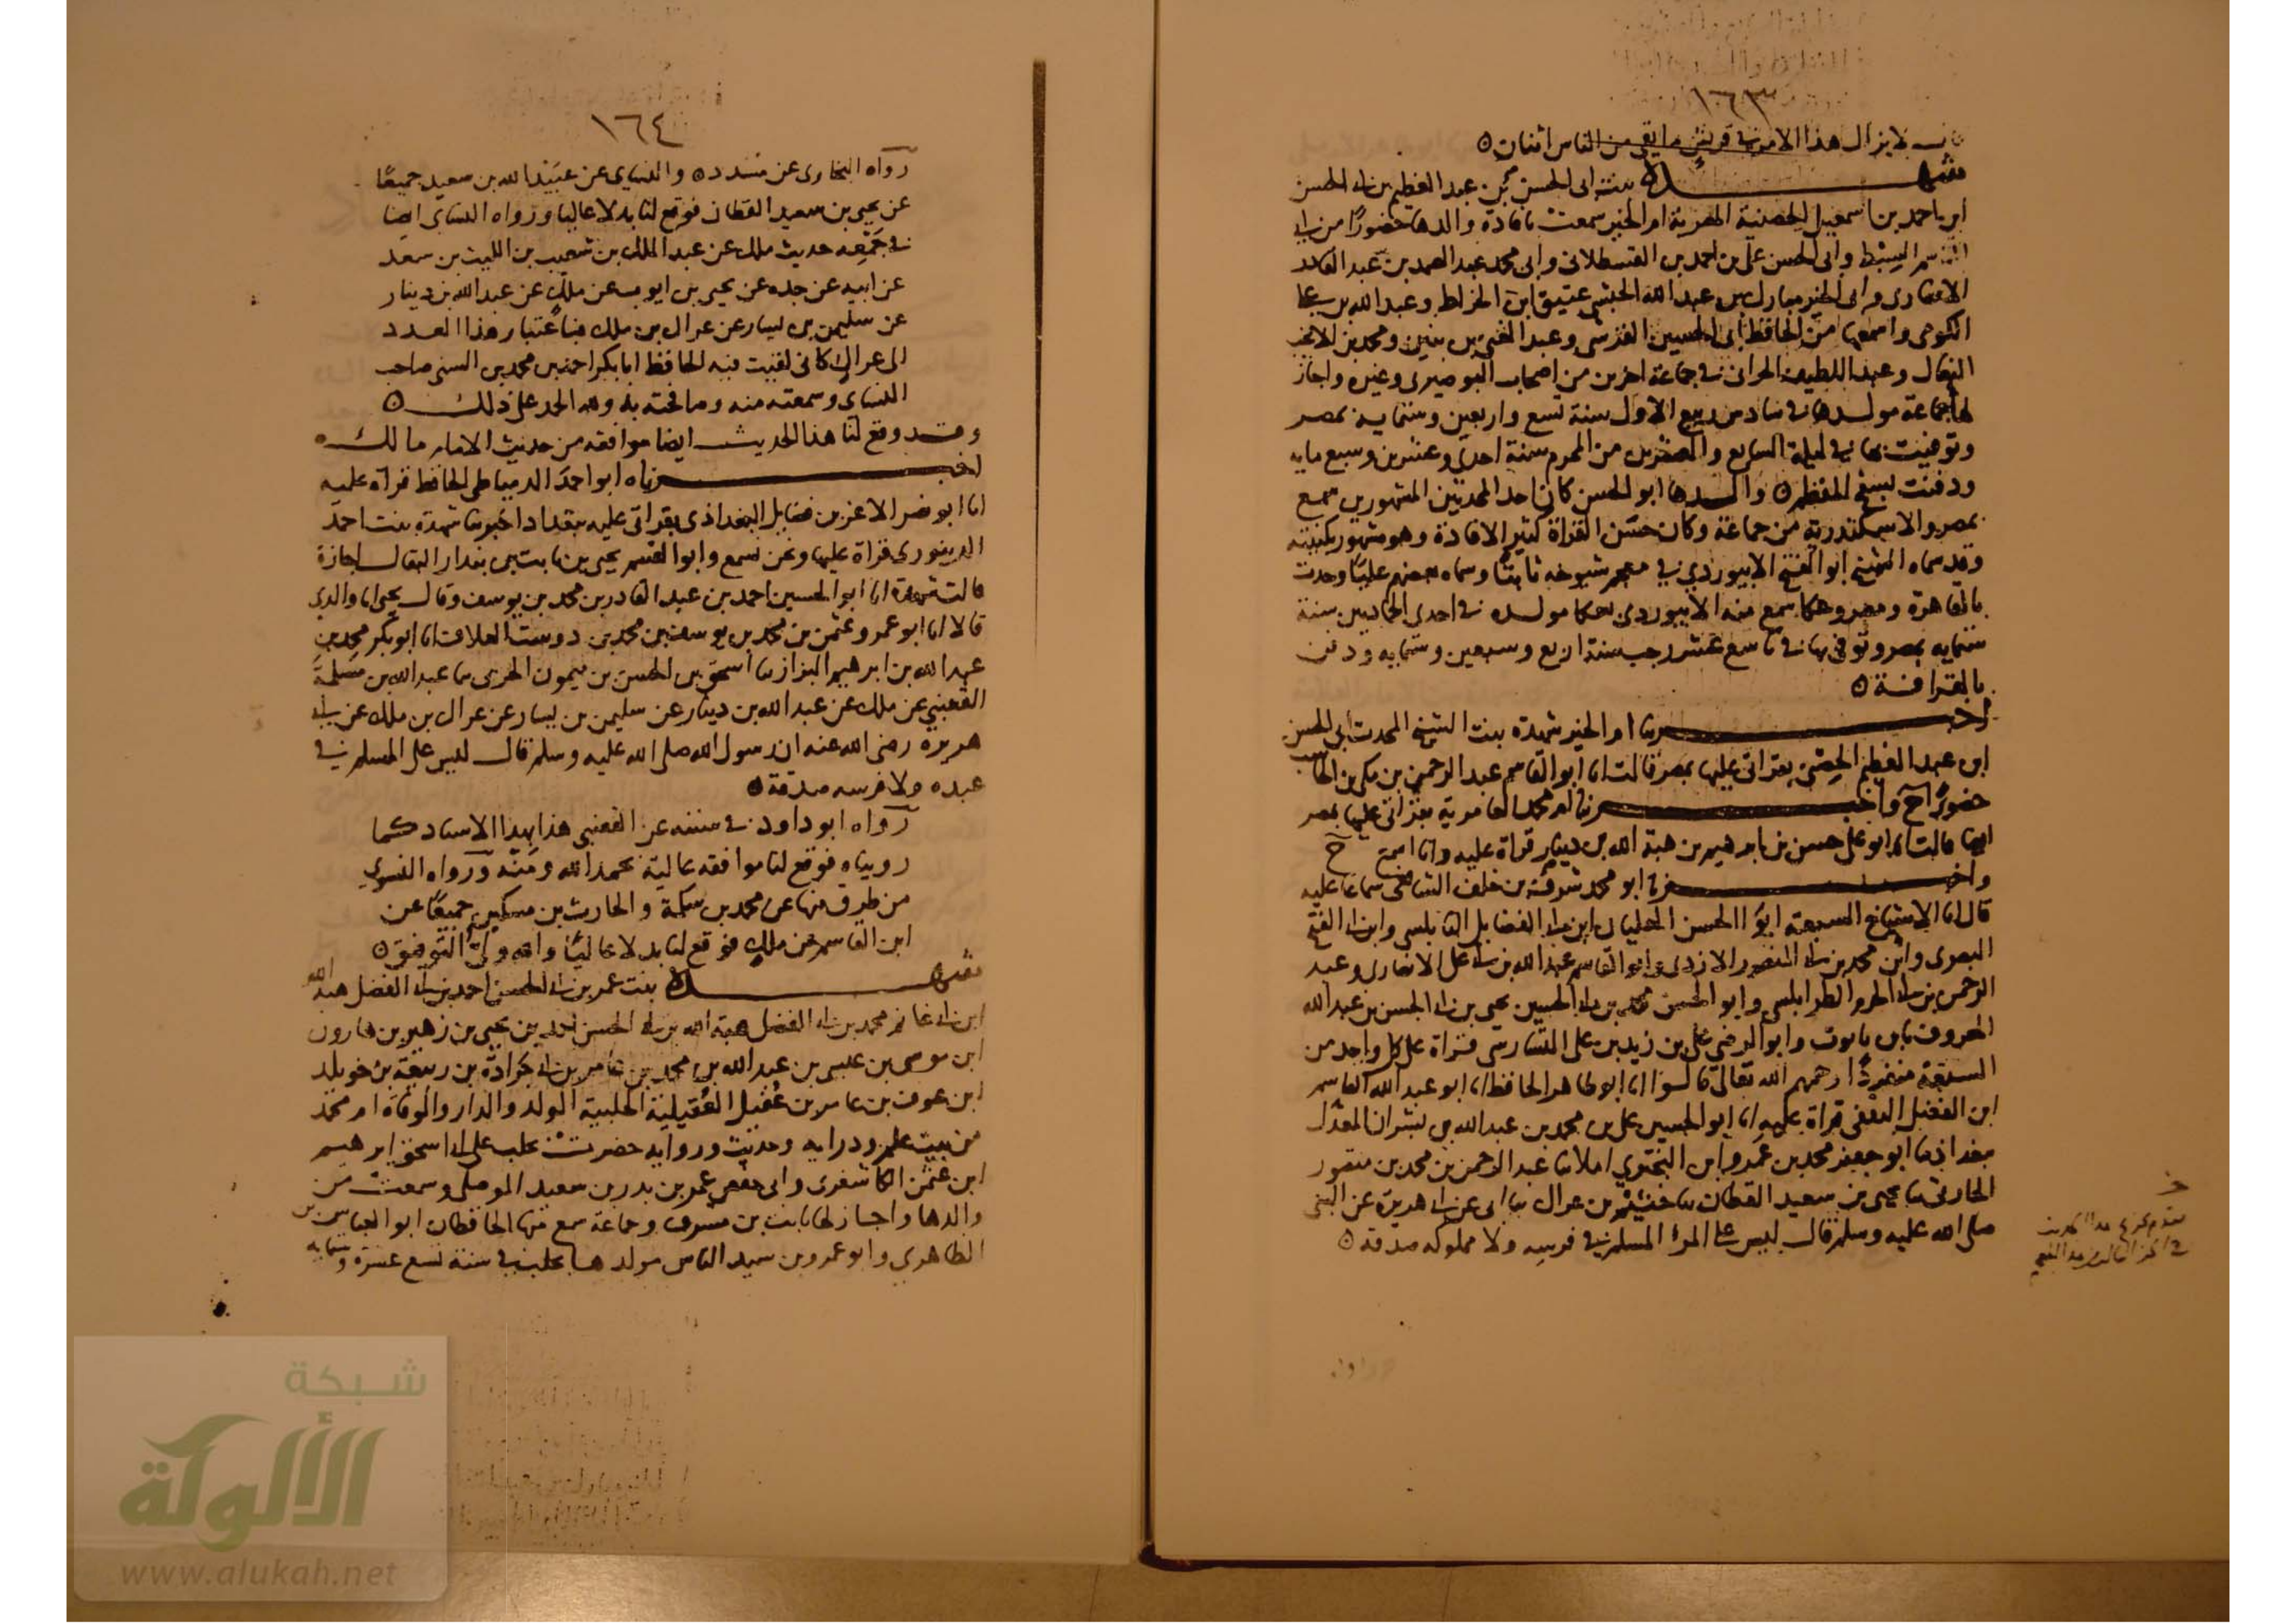 ١٦٣
قال لا يزال هذا الامر في قريش ما بقي من الناس اثنان ٥
شهدة بنت ابي الحسن بن عبد العظيم بن ابي الحسن
ابن احمد بن اسمعيل الحصنية المصرية ام الخير سمعت بافادة والدها حضورا من ابي
القاسم السبط وابي الحسن علي بن احمد بن القسطلاني وابي محمد عبد الصمد بن عبد القادر
الانصاري وابي الخير مبارك بن عبد الله الحبشي عتيق ابن الخراط وعبد الله بن
الكومي واسمعها من الحافظ ابي الحسين القرشي وعبد الغني بن بنين ومحمد بن الانجب
النعال وعبد اللطيف الحراني في جماعة اخرين من اصحاب البوصيري وغيره واجاز
لها جماعة مولدها في سادس ربيع الاول سنة تسع واربعين وستمايه بمصر
وتوفيت بها في ليلة السابع والعشرين من المحرم سنة احدى وعشرين وسبع مايه
ودفنت بسفح المقطم ٥ والدها ابو الحسن كان احد المحدثين المشهورين سمع
بمصر والاسكندرية من جماعة وكان حسن القراة كثير الافادة وهو مشهور بكنيته
وقد سماه الشيخ ابو الفتح الابيوردي في معجم شيوخه ثابتا وسماه بعضهم عليا وحدث
بالقاهرة ومصر وهكا سمع منه الابيوردي بهكا مولده في احدى الجماديين سنة
ستمايه بمصر وتوفي بها في تاسع عشر رجب سنة اربع وسبعين وستمايه ودفن
بالقرافة ٥
اخبرتنا ام الخير شهدة بنت الشيخ المحدث ابي الحسن
ابن عبد العظيم الحصني بقراتي عليها بمصر قالت انا ابو القاسم عبد الرحمن بن مكي بن الحاسب
حضورا ح واخبرتنا ام محمد العامرية بقراتي عليها بمصر
ايضا قالت انا ابو علي حسن بن ابرهيم بن هبة الله بن دينار قراة عليه وانا اسمع ح
واخبرنا ابو محمد شرفه بن خلف الشافعي سماعا عليه
قال انا الاشياخ السبعة ابوا الحسن العليان ابن ابي الفضايل النابلسي وابن ابي الفتح
البصري وابن محمد بن ابي المنصور الازدي وابو القاسم عبد الله بن ابي علي الانصاري وعبد
الرحمن بن ابي الحرم الطرابلسي وابو الحسن محمد بن ابي الحسين يحيى بن ابي الحسن بن عبد الله
المعروف بابن ياقوت وابو الرضى علي بن زيد بن علي التسارسي قراة على كل واحد من
السبعة منفردا رحمهم الله تعالى قالوا انا ابو طاهر الحافظ انا ابو عبد الله القاسم
ابن الفضل الثقفي قراة عليه انا ابو الحسين علي بن محمد بن عبد الله بن بشران المعدل
ببغداد نا ابو جعفر محمد بن عمرو ابن البختري املا نا عبد الرحمن بن محمد بن منصور
الحارثي نا يحيى بن سعيد القطان نا خثيم بن عراك نا ابي عن ابي هريرة عن النبي
صلى الله عليه وسلم قال ليس على المرا المسلم في فرسه ولا مملوكه صدقة ٥
١٦٤
رواه البخاري عن مسدد ٥ والنسايي عن عبيد الله بن سعيد جميعا
عن يحيى بن سعيد القطان فوقع لنا بدلا عاليا ورواه النسايي ايضا
في جمعه حديث ملك عن عبد الملك بن شعيب بن الليث بن سعد
عن ابيه عن جده عن يحيى بن ايوب عن ملك عن عبد الله بن دينار
عن سليمن بن يسار عن عراك بن ملك فباعتبار هذا العدد
الى عراك كاني لقيت فيه الحافظ ابا بكر احمد بن محمد بن السني صاحب
النسايي وسمعته منه وصافحته به ولله الحمد على ذلك ٥
وقد وقع لنا هذا الحديث ايضا موافقه من حديث الامام مالك ٥
اخبرناه ابو احمد الدمياطي الحافظ قراة عليه
انا ابو نصر الاعز بن فضايل البغدادي بقراتي عليه ببغداد اخبرتنا شهدة بنت احمد
الدينوري قراة عليها ونحن نسمع وابو القسم يحيى بن ثابت بن بندار البقال اجازة
قالت شهدة انا ابو الحسين احمد بن عبد القادر بن محمد بن يوسف وقال يحيى انا والدي
قالا انا ابو عمرو عثمن بن محمد بن يوسف بن محمد بن دوست العلاف انا ابو بكر محمد بن
عبد الله بن ابرهيم البزاز نا اسحق بن الحسن بن ميمون الحربي نا عبد الله بن مسلمة
القعنبي عن ملك عن عبد الله بن دينار عن سليمن بن يسار عن عراك بن ملك عن ابي
هريره رضي الله عنه ان رسول الله صلى الله عليه وسلم قال ليس على المسلم في
عبده ولا فرسه صدقة ٥
رواه ابو داود في سننه عن القعنبي هذا بهذا الاسناد كما
رويناه فوقع لنا موافقه عالية بحمد الله ومنه ورواه النسوي
من طرق منها عن محمد بن سلمة والحارث بن مسكين جميعا عن
ابن القاسم عن ملك فوقع لنا بدلا عاليا والله ولي التوفيق ٥
شهدة بنت عمر بن ابي الحسن احمد بن ابي الفضل هبة الله
ابن ابي غانم محمد بن ابي الفضل هبة الله بن ابي الحسن احمد بن يحيى بن زهير بن هارون
ابن موسى بن عيسى بن عبد الله بن محمد بن عامر بن ابي جرادة بن ربيعة بن خويلد
ابن عوف بن عامر بن عقيل العقيلية الحلبية المولد والدار والوفاة ام محمد
من بيت علم ودرايه وحديث وروايه حضرت بحلب على ابي اسحق ابرهيم
ابن عثمن الكاشغري وابي حفص عمر بن بدر بن سعيد الموصلي وسمعت من
والدها واجاز لها ثابت بن مشرف وجماعة سمع منها الحافظان ابو العباس بن
الظاهري وابو عمرو بن سيد الناس مولدها بحلب في سنة تسع عشرة وستمايه
شبكة
الألوكة
www.alukah.net